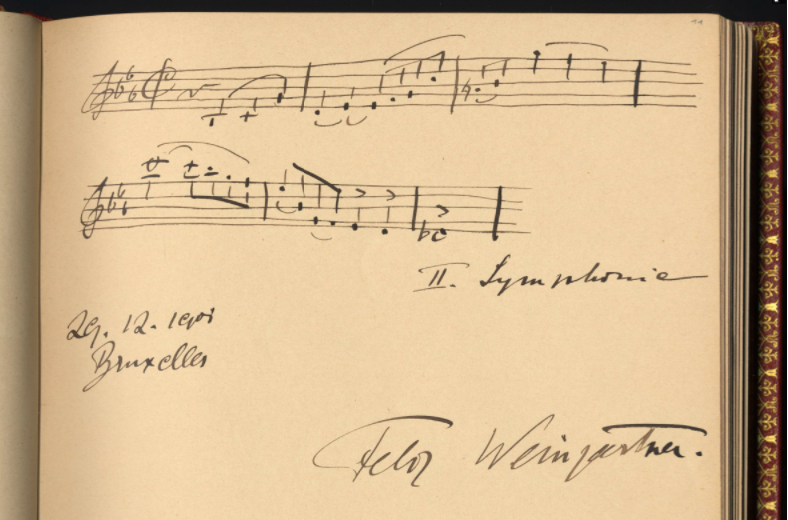 II. Symphonie
29. 12. 1901
Bruxelles
Felix Weingartner.